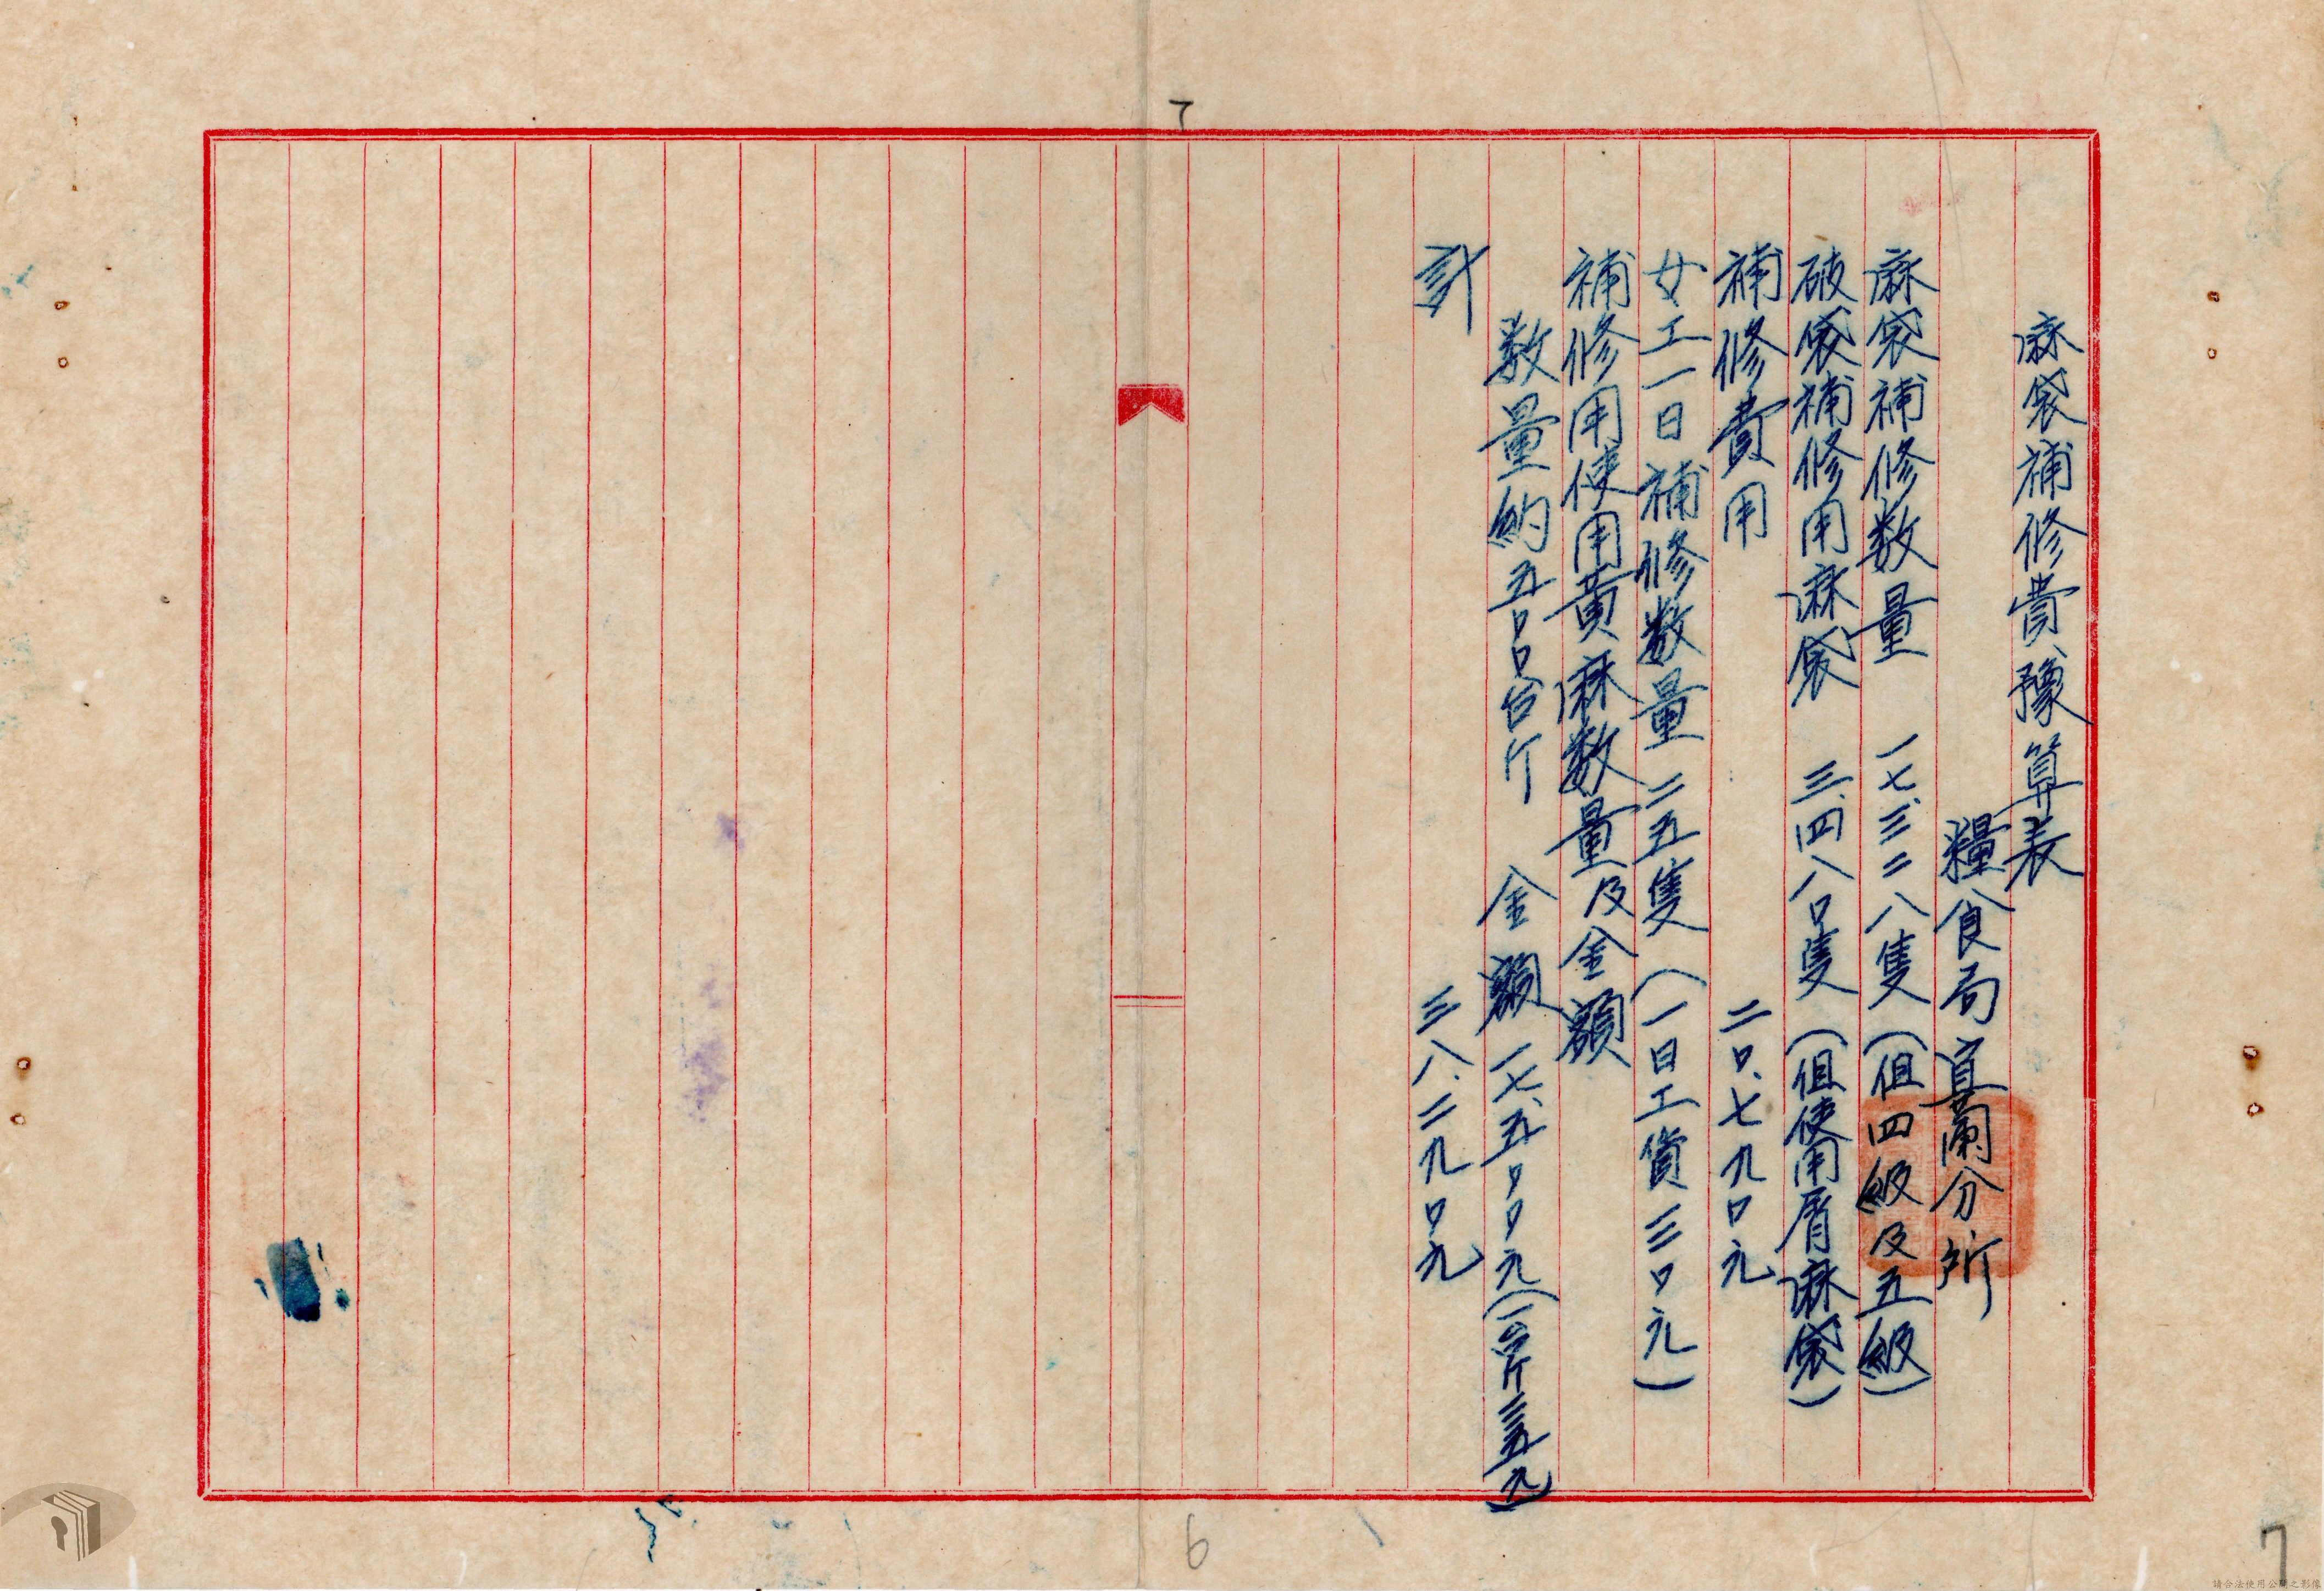 麻袋補修費豫算表
糧食局宜蘭分所
麻袋補修数量 一七、三二八隻(但四級及五級)
破袋補修用麻袋 三、四八〇隻(但使用屑麻袋)
補修費用 二〇、七九〇元
女工一日補修数量 二五隻(一日工賃三〇元)
補修用使用黄麻数量及金額
数量約五〇〇台斤 金額 一七、五〇〇元(一台斤三五元)
計 三八、二九〇元
7
6
7
請合法使用公開之影像